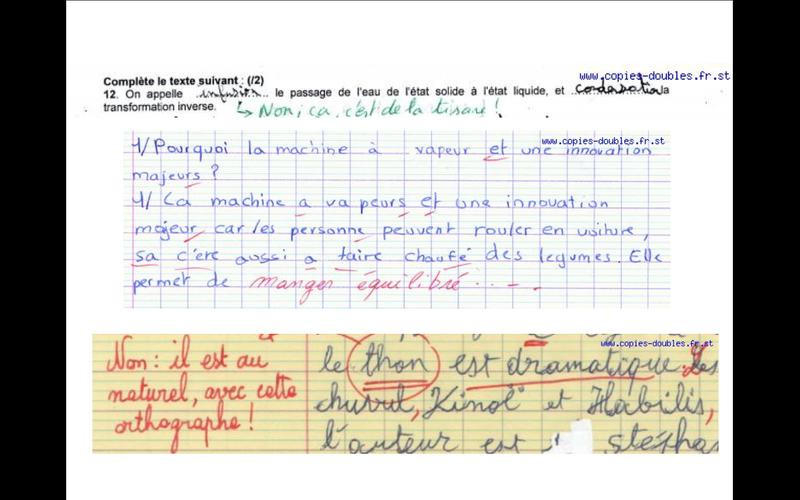 www.copies-doubles.fr.st
Complète le texte suivant : (/2)
12. On appelle ...infusion... le passage de l'eau de l'état solide à l'état liquide, et condasation la
transformation inverse.
↳ Non, ça, c'est de la tisane !
www.copies-doubles.fr.st
1/ Pourquoi la machine à vapeur et une innovation
majeurs ?
1/ La machine a va peurs et une innovation
majeur car les personne peuvent rouler en voiture,
sa c'ere aussi a faire chauffé des legumes. Elle
permet de manger équilibré . . - -
www.copies-doubles.fr.st
Non : il est au
naturel, avec cette
orthographe !
le thon est dramatique. Les
chuvul, Kinol et Habilis,
l'auteur est stepha